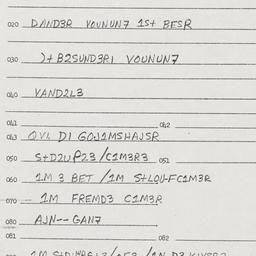 020 DAND3R VOUNUN7 1St BESR
030 )+ B2SUND3RI VOUNUN7
040 VAND2L3
041 042
043 DI GOJ1MSHAJSR
050 S+D2UP23/C1M3R3 051
060 1M 3 BET /1M S+LQU-FC1M3R
070 1M FREMD3 C1M3R
080 AJN--GAN7
081 082